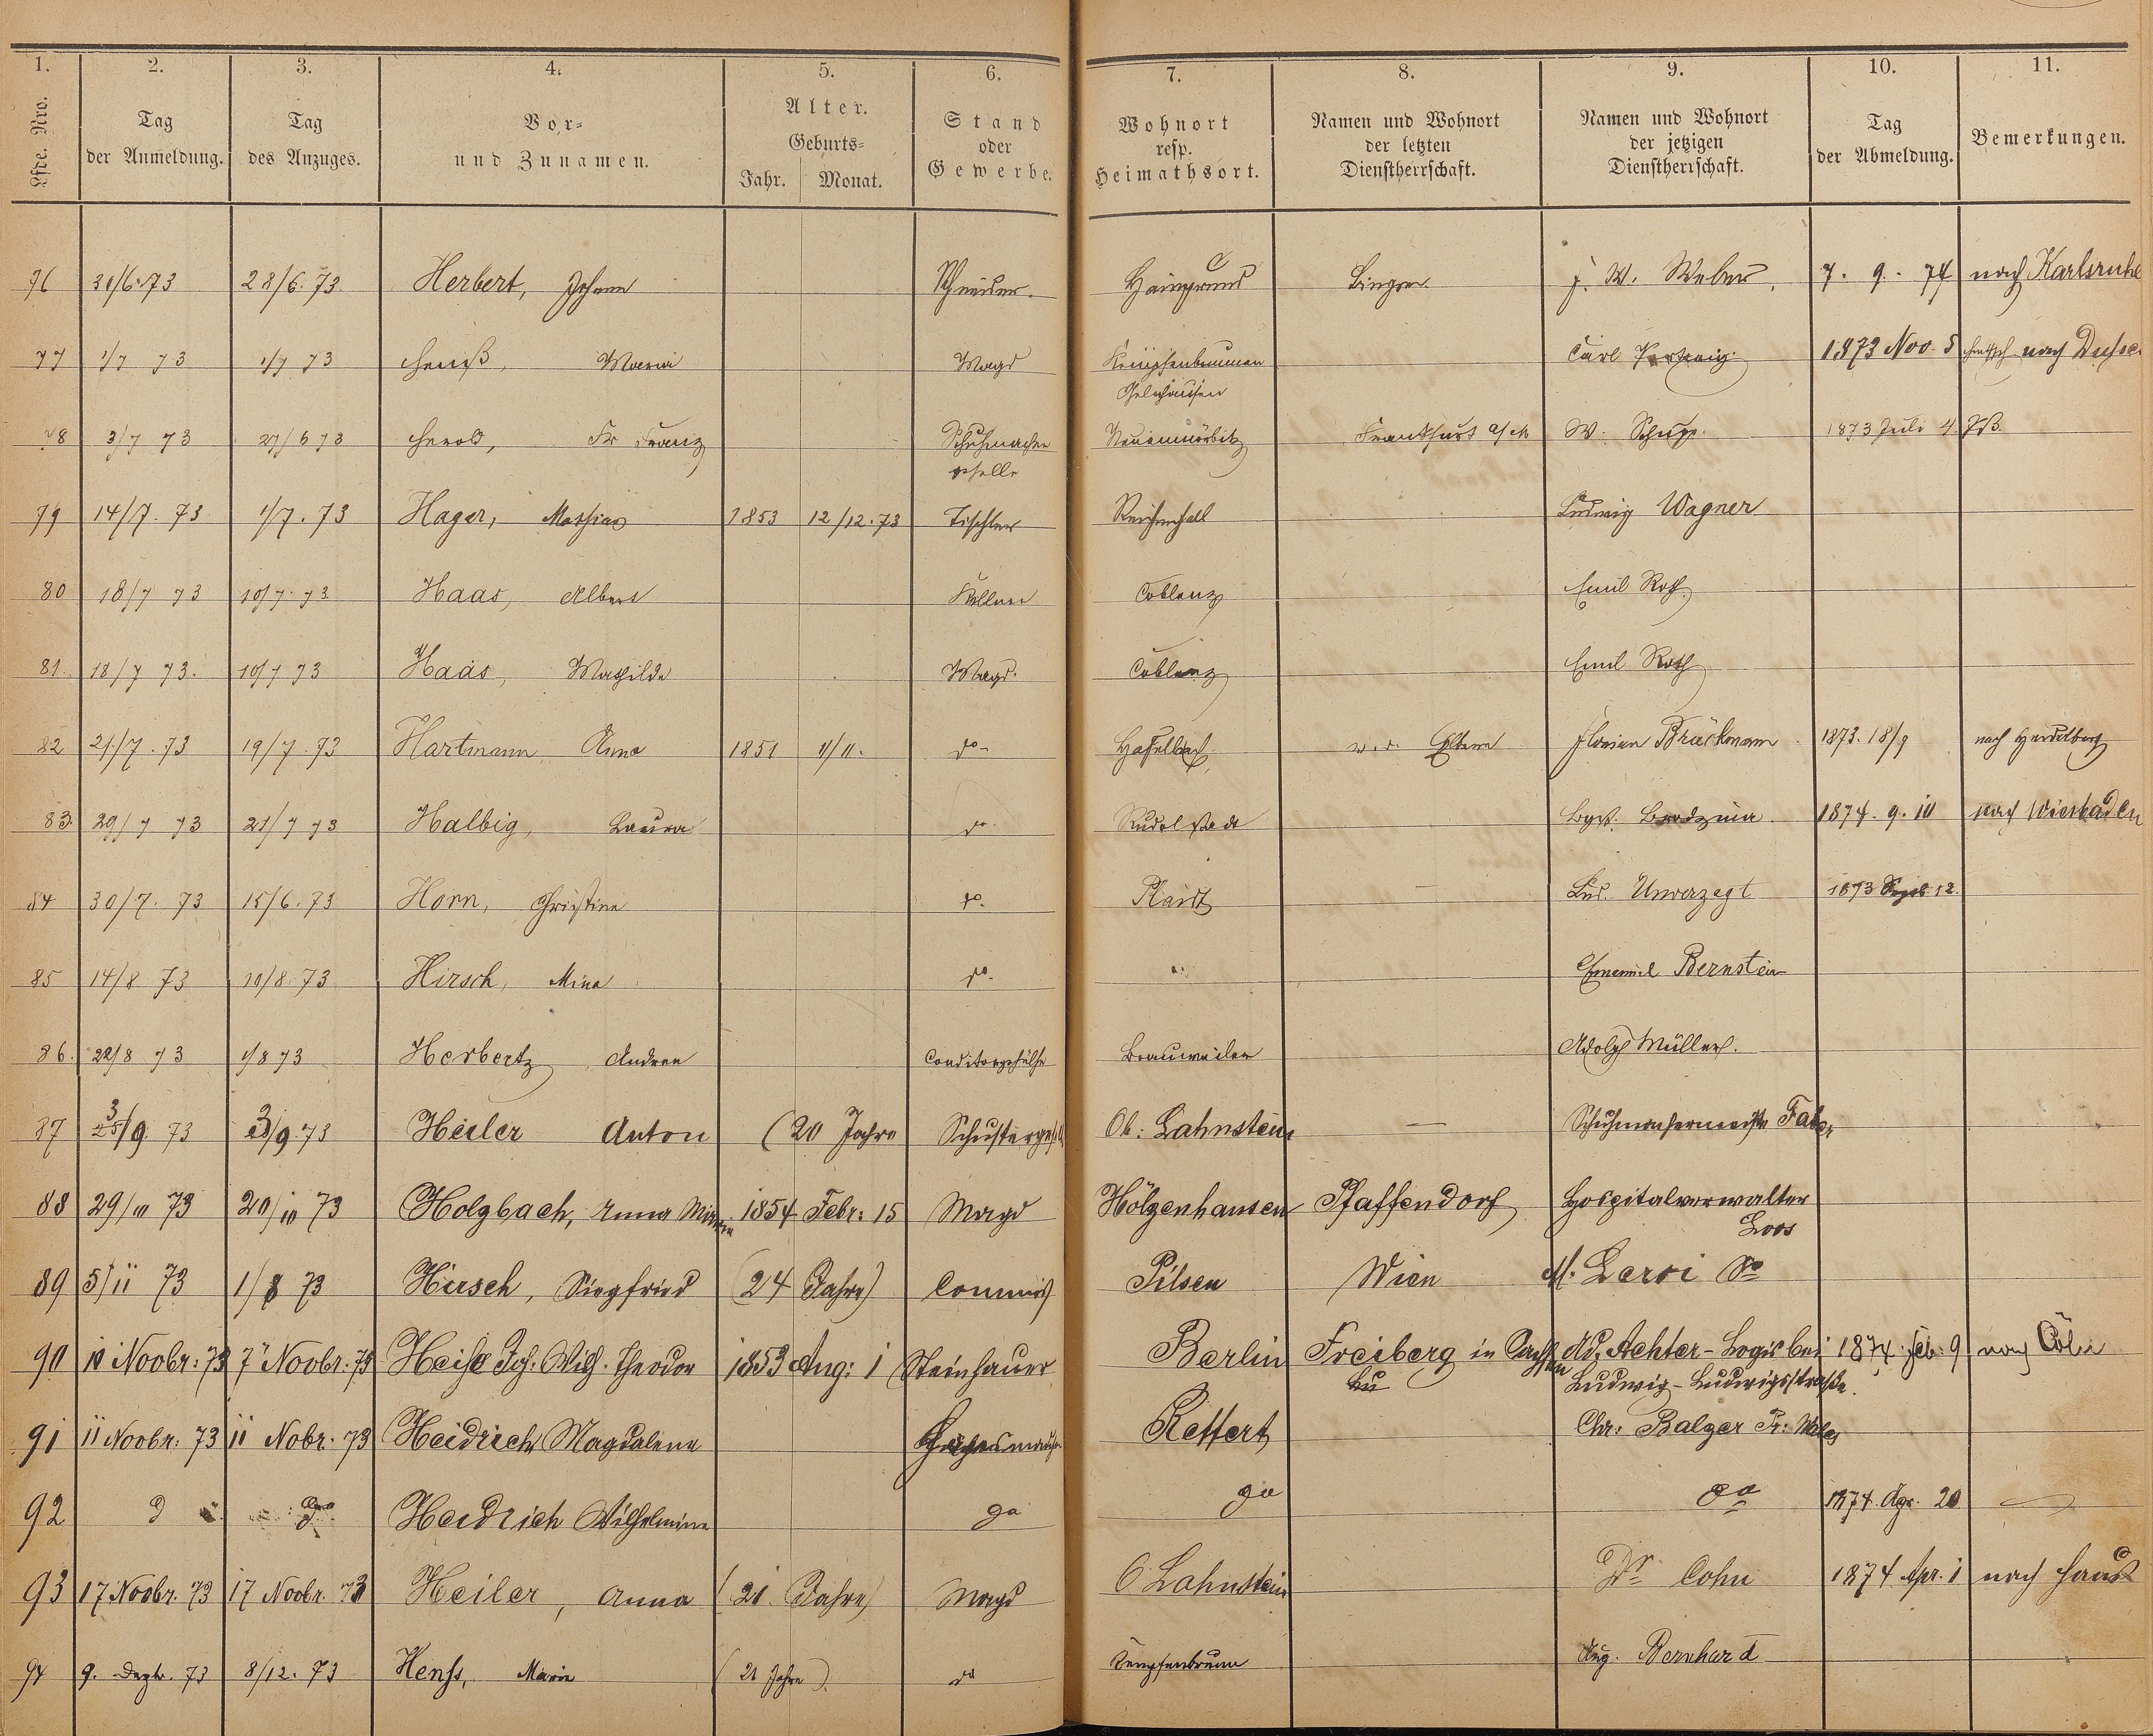 1. 2. 3. 4. 5. 6. 7. 8. 9. 10. 11.
Lfde. Nro. Tag der Anmeldung. Tag des Anzuges. Vor- und Zunamen. Alter. Geburts- Jahr. Monat. Stand oder Gewerbe. Wohnort resp. Heimathsort. Namen und Wohnort der letzten Dienstherrschaft. Namen und Wohnort der jetzigen Dienstherrschaft. Tag der Abmeldung. Bemerkungen.
76 28/6. 73 Herbert, Johann Bingen J. W. Weber. 7. 9. 74 nach Karlsruhe
77 1/7 73 1/7 73 Maria Magd Gelnhausen Carl 1873 Nov. 5 nach
78 3/7 73 27/6 73 Herold, Fr Franz Schuhmacher Frankfurt a/M W. 1873 Juli 4.
geselle
79 14/7. 73 1/7. 73 Hager, Mathias 1853 12/12. 73 Tischler Reichenhall Ludwig Wagner
80 18/7 73 10/7. 73 Haas, Albert Kellner Coblenz Emil Roth
81. 18/7 73. 10/7 73 Haas, Mathilde Magd. Coblenz Emil Roth
82 21/7. 73 19/7. 73 Hartmann, Anna 1851 11/11. do Haselbach Eltern Florian Brückmann 1873. 18/9 nach Heidelberg
83. 29/7 73 21/7 73 Halbig, Laura do Rudolstadt 1874. 9. 10 nach Wiesbaden
84 30/7. 73 15/6. 73 Horn, Christine do. Plaidt — Lud. Unverzagt 1873 Sept 12.
85 14/8 73 10/8. 73 Hirsch, Mina do. Bernstein
86. 22/8 73 1/8 73 Herbertz, Andreas Conditorgehülfe Brauweiler Adolph Müller.
87 3/9. 73 3/9. 73 Heiler Anton (20 Jahre Schustergesell Ob: Lahnstein — Schuhmachermeister Faber
88 29/10 73 20/10 73 Holzbach, Anna Maria 1854 Febr: 15 Magd Hölzenhausen Pfaffendorf Hospitalverwalter
Loos
89 5/11 73 1/8 73 Hirsch, Siegfried (24 Jahre) Commis Pilsen Wien M. Leroi
90 10 Novbr: 73 7 Novbr: 73 Heise Joh: Wilh. Theodor 1853 Aug: 1 Steinhauer Berlin Freiberg in Sachsen Ad. Achter - Logis bei 1874 Feb: 9 nach Cöln
Ludwig - Ludwigsstraße.
91 11 Novbr: 73 11 Nobr. 73 Heidrich Magdalena Rettert Chr: Balzer
92 Heidrich Wilhelmine do do do 1874. Apr. 20 —
93 17 Novbr. 73 17 Novbr. 73 Heiler, Anna (21 Jahre) Magd O. Lahnstein Dr Cohn 1874 Apr. 1 nach Haus
94 9. Dezbr. 73 8/12. 73 Henss, Marie (21 Jahre). do Kempfenbrunn Aug. Bernhard